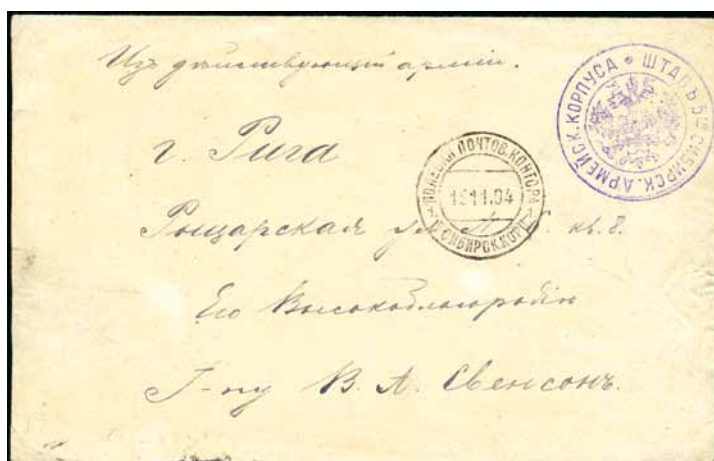 Изъ действующей арміи.
ШТАБЪ 5го СИБИРСК. АРМЕЙСК. КОРПУСА
г. Рига
ПОЛЕВАЯ ПОЧТОВ. КОНТОРА
11.04
СИБИРСК. КОРП.
Рыцарская ул. кв. 8.
Его Высокоблагородію
Г-ну В. А. Свенсонъ.